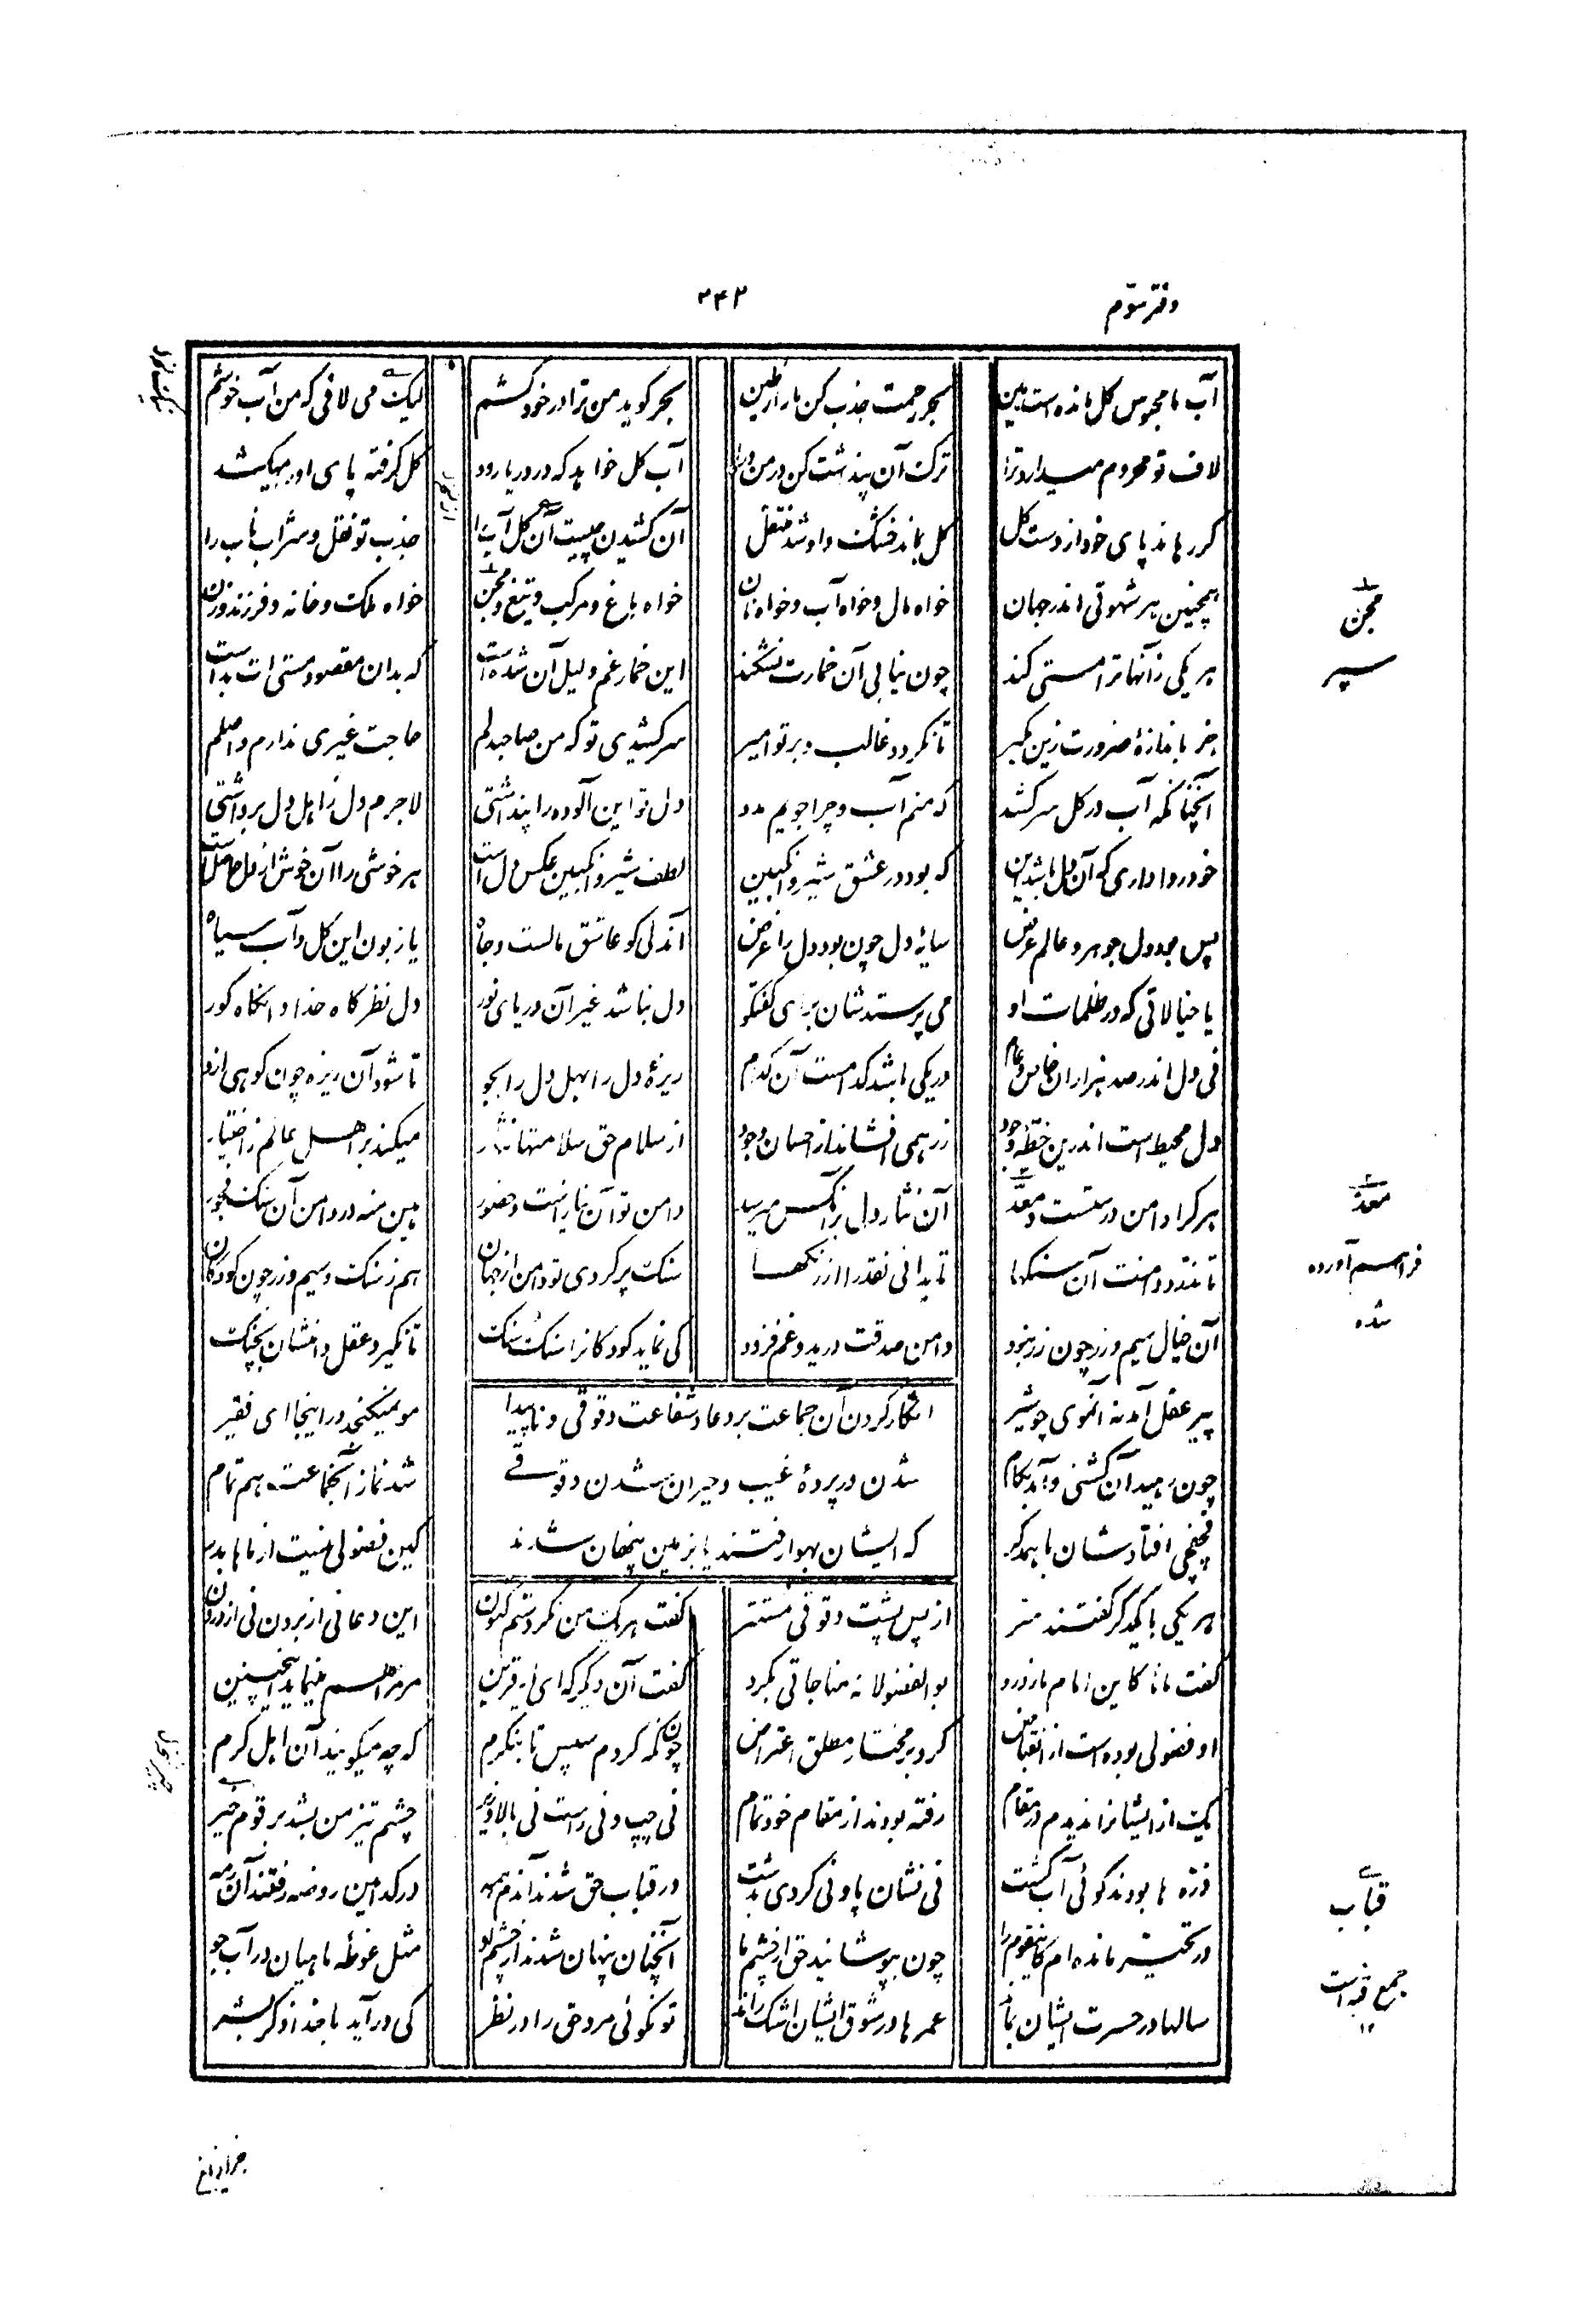 دفتر سوم
۲۴۲
آب ما محبوس گل مانده است هین بحر رحمت جذب کن ما را ز طین بحر گوید من ترا در خود کشم لیک می لافی که من آب خوشم
لاف تو محروم میدارد ترا ترک آن پنداشت کن در من درآ آب گل خواهد که در دریا رود گل گرفته پای او را میکشد
گر رهاند پای خود از دست گل گل بماند خشک و او شد مستقل آن کشیدن چیست آن گل آب را جذب تو نقل و شراب ناب را
همچنین هر شهوتی اندر جهان خواه مال و خواه آب و خواه نان خواه باغ و مرکب و تیغ و مجن خواه ملک و خانه و فرزند و زن
هر یکی زآنها ترا مستی کند چون نیابی آن خمارت نشکند این خمار غم دلیل آن شده است که بدان مفقود مستی ات بد است
جز باندازهٔ ضرورت زین مگیر تا نگردد غالب و بر تو امیر سر کشیدی تو که من صاحبدلم حاجت غیری ندارم واصلم
آنچنانکه آب در گل سر کشد که منم آب و چرا جویم مدد دل تو این آلوده را پنداشتی لاجرم دل ز اهل دل برداشتی
خود روا داری که آن دل باشد این که بود در عشق شیر و انگبین لطف شیر و انگبین عکس دل است هر خوشی را آن خوش از دل حاصل است
پس بود دل جوهر و عالم عرض سایهٔ دل چون بود دل را غرض آندلی کو عاشق مالست و جاه یا زبون این گل و آب سیاه
یا خیالاتی که در ظلمات او می پرستدشان برای گفتگو دل نباشد غیر آن دریای نور دل نظرگاه خدا وانگاه کور
نی دل اندر صد هزاران خاص و عام در یکی باشد کدامست آن کدام ریزهٔ دل را بهل دل را بجو تا شود آن ریزه چون کوهی ازو
دل محیط است اندرین خطهٔ وجود زر همی افشاند از احسان وجود از سلام حق سلامتها نثار میکند بر اهل عالم ز اختیار
هر کرا دامن درستست و معد آن نثار دل بر آنکس میرسد دامن تو آن نیازست و حضور هین منه در دامن آن سنگ فجور
تا ندرد دامنت آن سنگها تا بدانی نقد را از رنگها سنگ پر کردی تو دامن از جهان هم ز سنگ و سیم و زر چون کودکان
آن خیال سیم و زر چون زر نبود دامن صدقت درید و غم فزود کی نماید کودکانرا سنگ سنگ تا نگیرد عقل دامنشان بچنگ
پیر عقل آمد نه آنموی چو شیر مو نمیگنجد در اینجا ای فقیر
انکار کردن آن جماعت بر دعا و شفاعت دقوقی و ناپیدا
شدن در پردهٔ غیب و حیران شدن دقوقی
که ایشان بهوا رفتند یا بزمین پنهان شدند
چون رهید آن کشتی و آمد بکام شد نماز آنجماعت هم تمام
فجفجی افتادشان با همدگر کین فضولی کیست از ما ای پدر
هر یکی با یکدگر گفتند سر از پس پشت دقوقی مستتر گفت هر یک من نکردستم کنون این دعا نی از برون نی از درون
گفت مانا کاین امام ما ز درد بوالفضولانه مناجاتی بکرد گفت آن دیگر که ای یار قرین مر مرا هم مینماید اینچنین
او فضولی بوده است از انقباض کرد بر مختار مطلق اعتراض چون نگه کردم سپس تا بنگرم که چه میگویند آن اهل کرم
یک از ایشانرا ندیدم در مقام رفته بودند از مقام خود تمام نی چپ و نی راست نی بالا و زیر چشم تیز من نشد بر قوم چیر
ذره ها بودند گوئی آب گشت نی نشان پا و نی گردی بدشت در قباب حق شدند آندم همه در کدامین روضه رفتند آن رمه
در تحیر مانده ام کاینقوم را چون بپوشانید حق از چشم ما آنچنان پنهان شدند از چشم او مثل غوطهٔ ماهیان در آب جو
سالها در حسرت ایشان بماند عمرها در شوق ایشان اشک راند تو نگوئی مرد حق را در نظر کی درآید با خدا ذکر بشر
مجن
سپر
معد
فراهم آورده
شده
قباب
جمع قبه است
۱۲